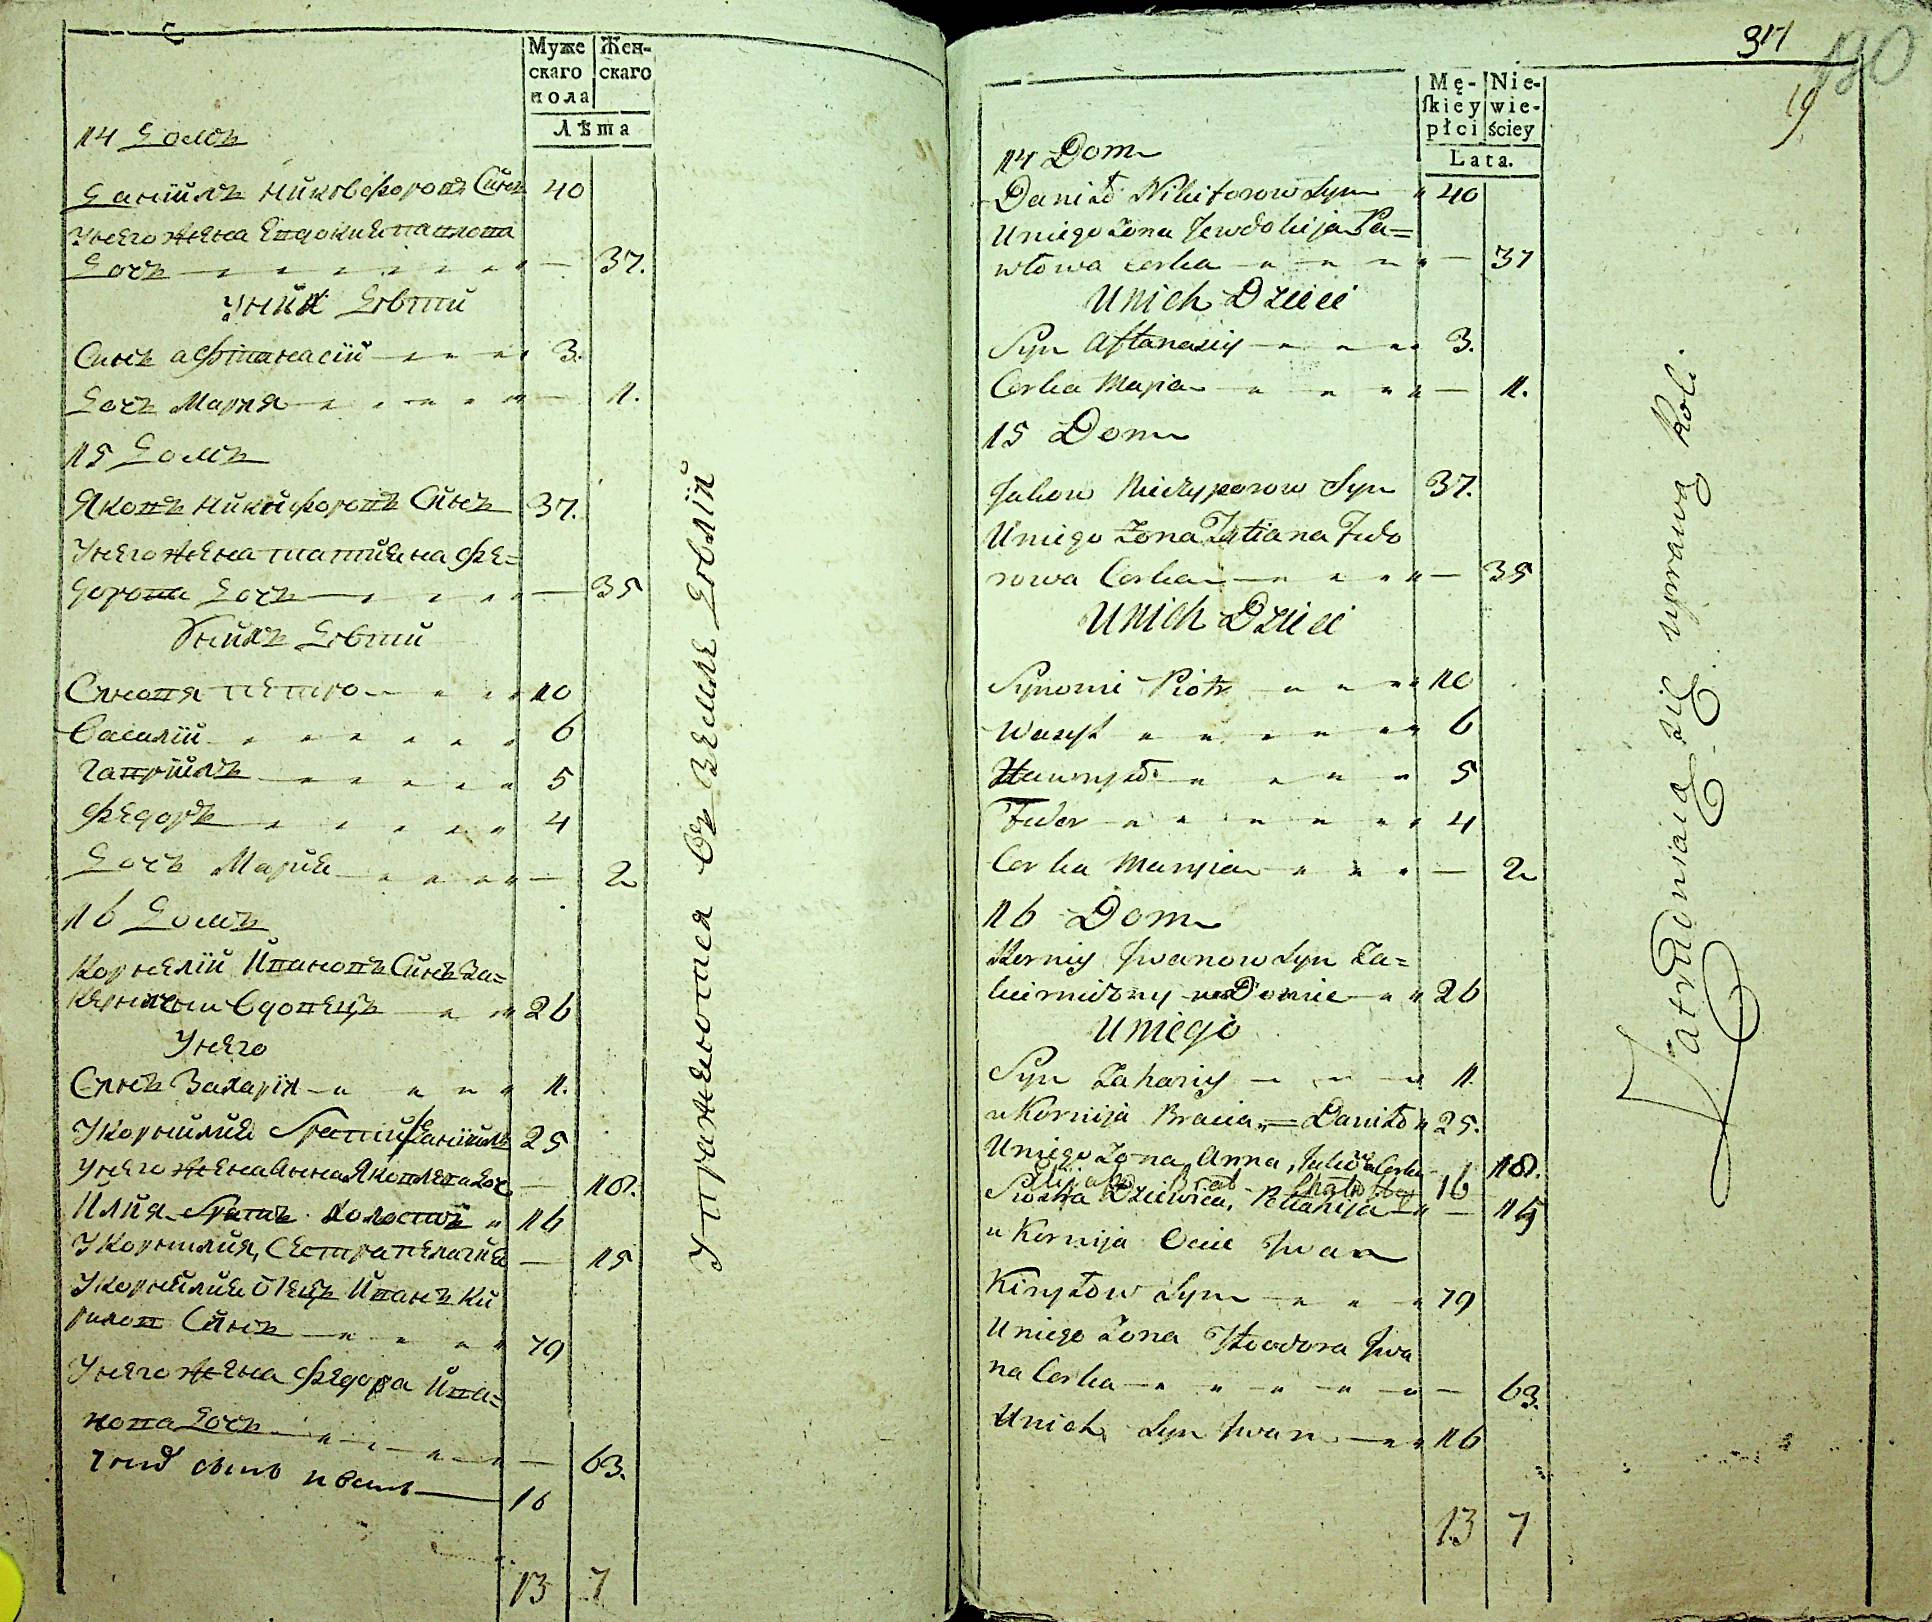 Муже
скаго
пола
Жен-
скаго
Лѣта
14 Домъ
Данiилъ Никифоровъ Синъ 40
Унего Жена Евдокия Павлова
Дочъ — 37.
Уних Дѣти
Синъ Афтанасiй 3.
Дочъ Мария — 1.
15 Домъ
Яковъ Никифоровъ Синъ 37.
Унего Жена Татияна Фе=
дорова Дочъ — 35
Унихъ Дѣти
Синовя Петро 10
Василiй 6
Гаврiилъ 5
Федоръ 4
Дочъ Мария — 2
16 Домъ
Корнелiй Ивановъ Синъ
Вдовецъ 26
Унего
Синъ Захарiя 1.
У Корнилия Братiи Данiилъ 25
Унего Жена Анна Яковлева Доч — 18.
Илия Братъ Холостъ 16
У Корнилия, Сестра Пелагия — 15
У Корнилия Отецъ Иванъ Ки
рилов Синъ 79
Унего Жена Федора Ива=
нова Дочъ — 63.
сынъ Иванъ — 16
13 7
Упражняются Въ Земле Делiй
371
190
19
Mę-
ſkiey
płci
Nie-
wie-
ściey
Lata.
14 Dom
Daniło Nikiforow Syn 40
Uniego Zona Jewdokija Pa=
włowa Corka — 37
Unich Dzieci
Syn Aftanasiy 3.
Corka Maria — 1.
15 Dom
Jakow Niczyporow Syn 37.
Uniego Zona Tatiana Fedo
rowa Corka — 35
Unich Dzieci
Synowie Piotr 10
Wasyl 6
Hawryło 5
Fedor 4
Corka Marysia — 2
16 Dom
Korniy Iwanow Syn Za=
Domie 26
Uniego
Syn Zahariy 1.
u Kornija Bracia = Daniło 25.
Uniego Zona Anna, Jakowa Corka 18.
Brat 16
Siostra Dziewica, Pełahija — 15
u Kornija Ociec Iwan
Kiryłow Syn 79
Uniego Zona Theodora Iwa
na Corka — 63.
Unich Syn Iwan 16
13 7
Zatrudniaią się uprawą Roli.